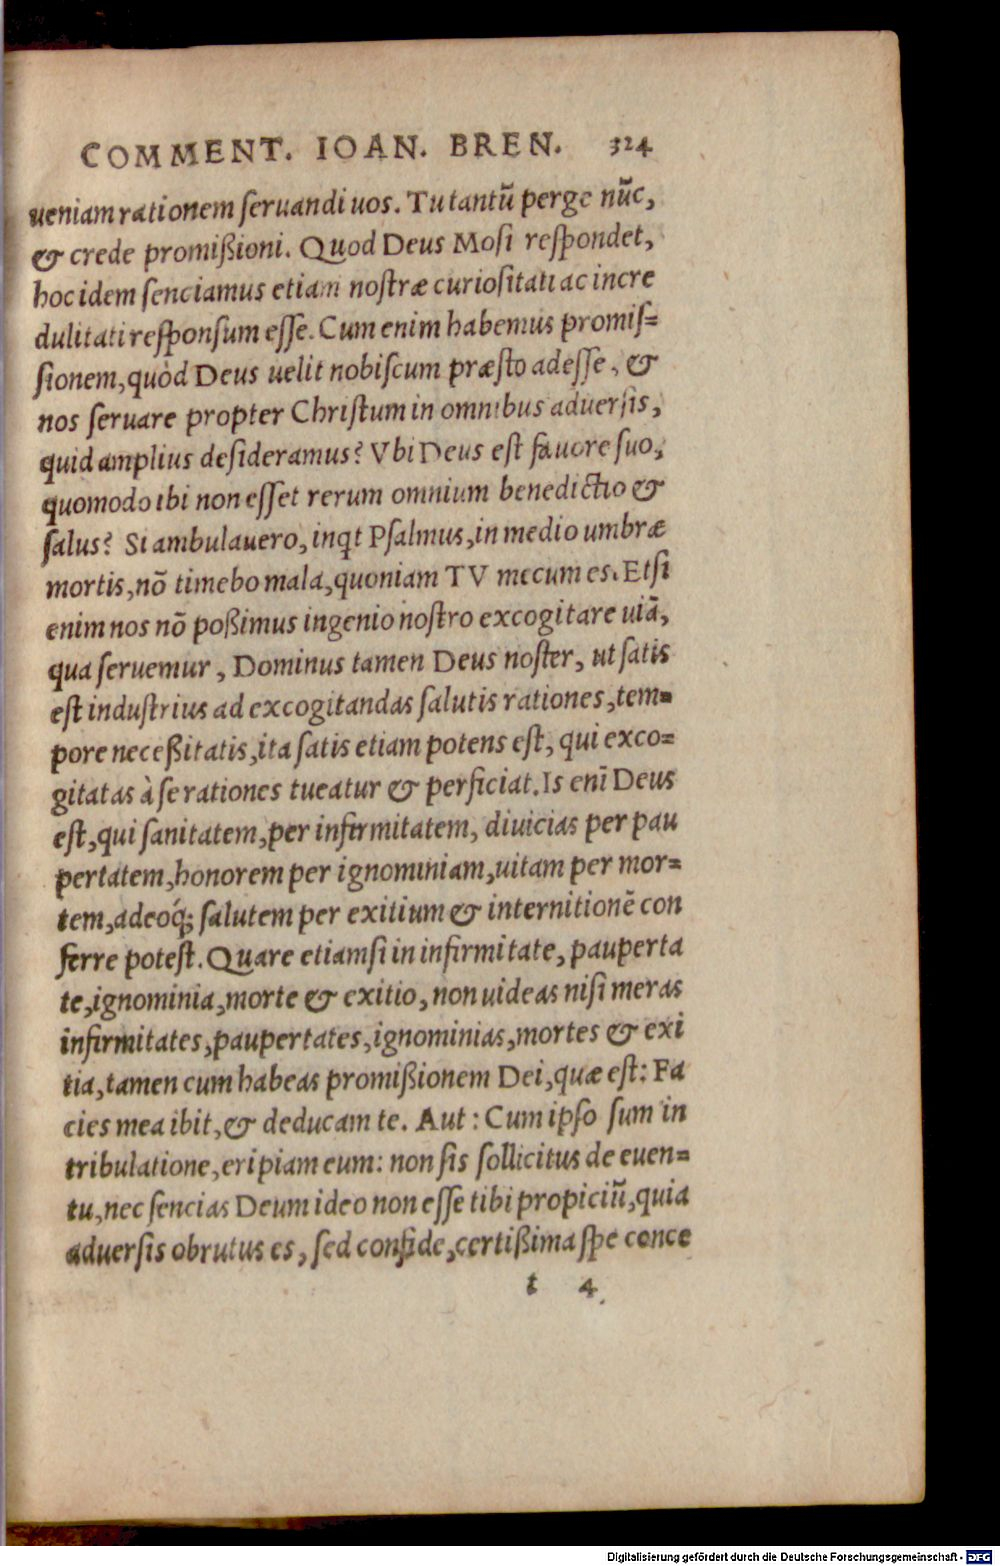 COMMENT. IOAN. BREN. 324
ueniam rationem seruandi uos. Tu tantũ perge nũc,
& crede promißioni. Quod Deus Mosi respondet,
hoc idem senciamus etiam nostræ curiositati ac incre
dulitati responsum esse. Cum enim habemus promis=
sionem, quòd Deus uelit nobiscum præsto adesse, &
nos seruare propter Christum in omnibus aduersis,
quid amplius desideramus? Vbi Deus est fauore suo,
quomodo ibi non esset rerum omnium benedictio &
salus? Si ambulauero, inqt Psalmus, in medio umbræ
mortis, nõ timebo mala, quoniam TV mecum es. Etsi
enim nos nõ poßimus ingenio nostro excogitare uiã,
qua seruemur, Dominus tamen Deus noster, ut satis
est industrius ad excogitandas salutis rationes, tem=
pore neceßitatis, ita satis etiam potens est, qui exco=
gitatas à se rationes tueatur & perficiat. Is enĩ Deus
est, qui sanitatem, per infirmitatem, diuicias per pau
pertatem, honorem per ignominiam, uitam per mor=
tem, adeoq́; salutem per exitium & internitionẽ con
ferre potest. Quare etiamsi in infirmitate, pauperta
te, ignominia, morte & exitio, non uideas nisi meras
infirmitates, paupertates, ignominias, mortes & exi
tia, tamen cum habeas promißionem Dei, quæ est: Fa
cies mea ibit, & deducam te. Aut: Cum ipso sum in
tribulatione, eripiam eum: non sis sollicitus de euen=
tu, nec sencias Deum ideo non esse tibi propiciũ, quia
aduersis obrutus es, sed confide, certißima spe conce
t 4
Digitalisierung gefördert durch die Deutsche Forschungsgemeinschaft - DFG